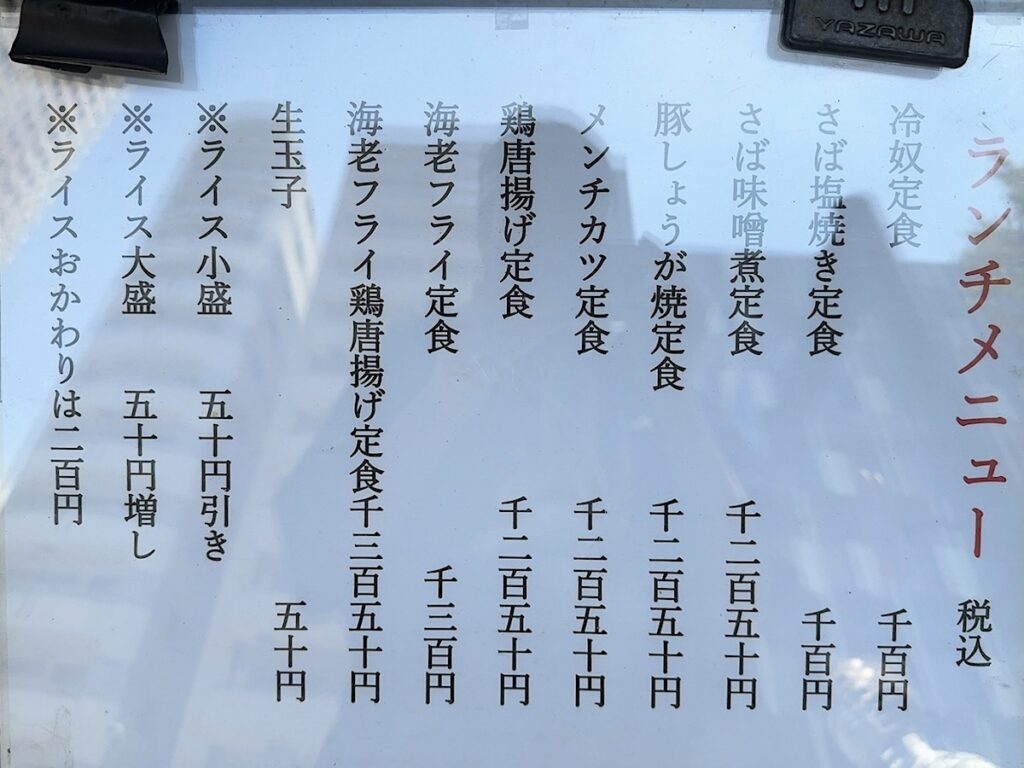 ランチメニュー 税込
冷奴定食 千百円
さば塩焼き定食 千百円
さば味噌煮定食 千二百五十円
豚しょうが焼定食 千二百五十円
メンチカツ定食 千二百五十円
鶏唐揚げ定食 千二百五十円
海老フライ定食 千三百円
海老フライ鶏唐揚げ定食千三百五十円
生玉子 五十円
※ライス小盛 五十円引き
※ライス大盛 五十円増し
※ライスおかわりは二百円
YAZAWA